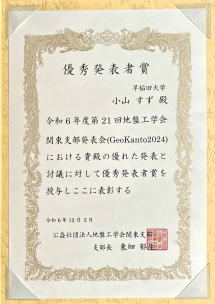 優秀発表者賞
早稲田大学
小山 すず 殿
令和6年度第21回地盤工学会
関東支部発表会(GeoKanto2024)
における貴殿の優れた発表と
討議に対して優秀発表者賞を
授与しここに表彰する
令和6年12月2日
公益社団法人地盤工学会関東支部
支部長 東畑 郁生